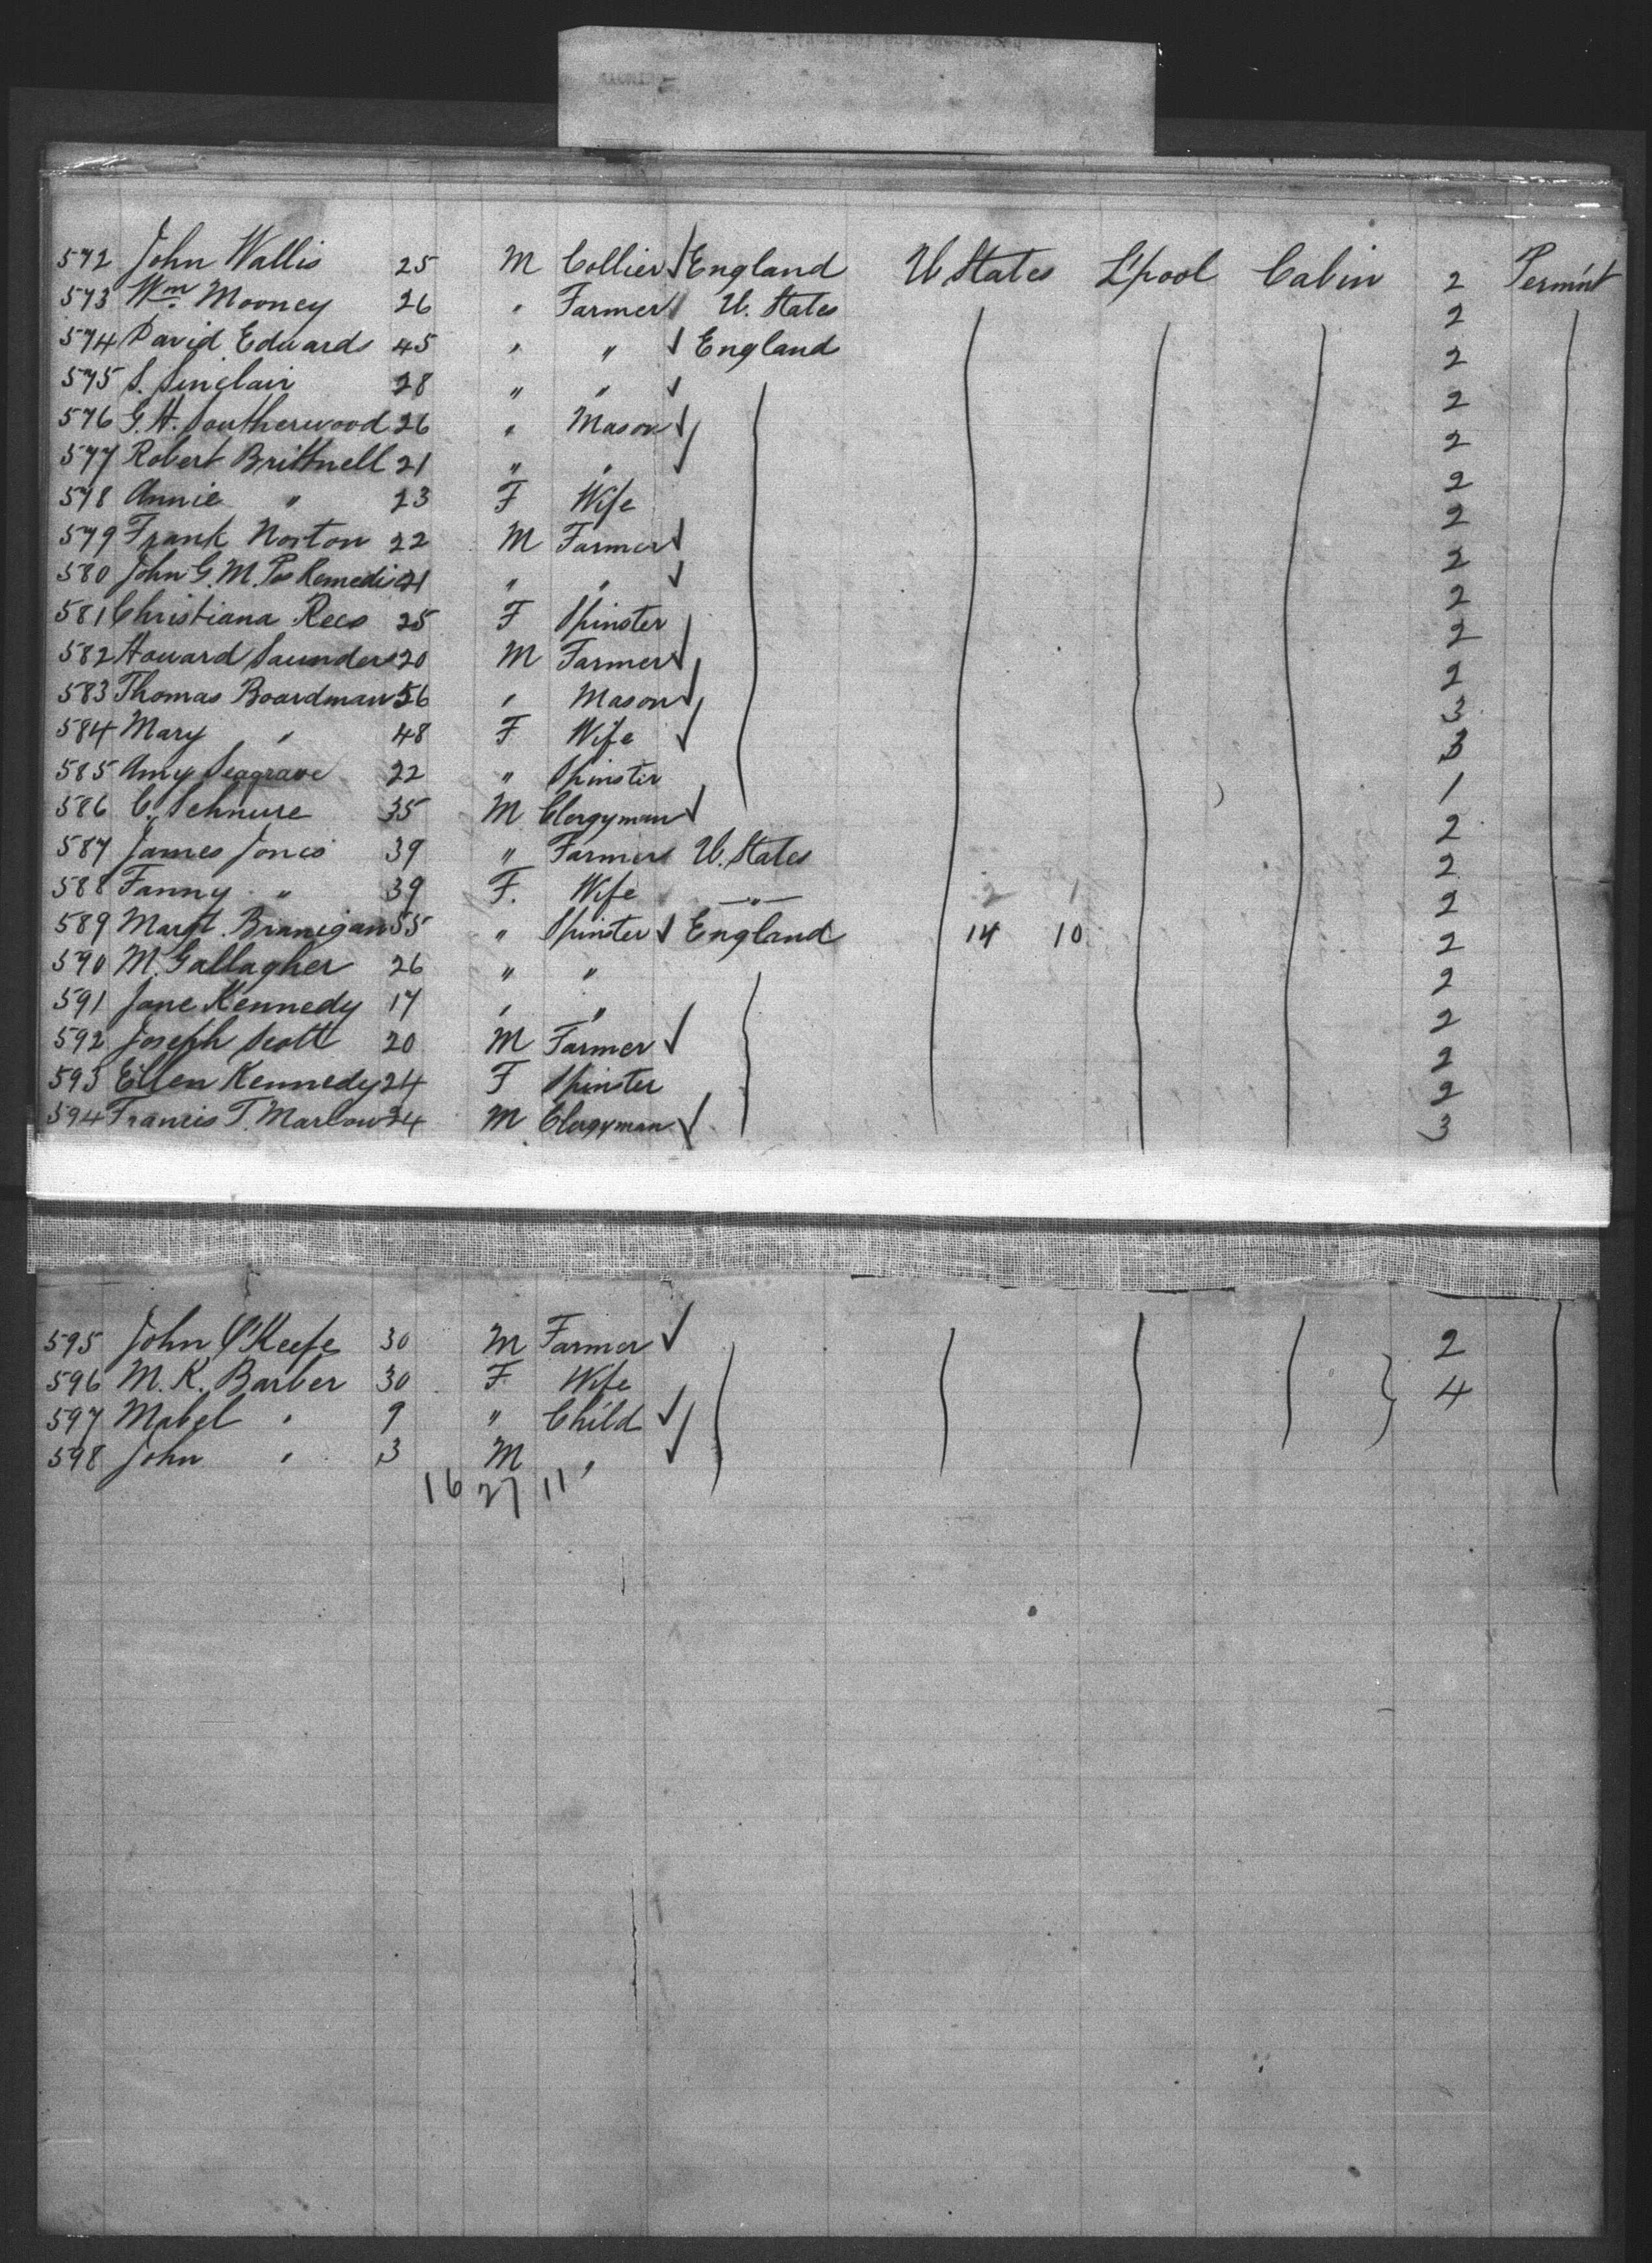 572 John Wallis 25 M Collier England U States L'pool Cabin 2 Permn't
573 Wm Mooney 26 " Farmer U. States 2
574 David Edwards 45 " " England 2
575 S. Sinclair 28 " " 2
576 G. H. Southerwood 26 " Mason 2
577 Robert Brittnell 21 " " 2
578 Annie " 23 F Wife 2
579 Frank Norton 22 M Farmer 2
580 John G. M. 21 " " 2
581 Christiana Rees 25 F Spinster 2
582 Howard Saunders 20 M Farmer 2
583 Thomas Boardman 56 " Mason 3
584 Mary " 48 F Wife 3
585 Amy Seagrave 22 " Spinster 1
586 C. Schnure 35 M Clergyman 2
587 James Jones 39 " Farmer U. States 2
588 Fanny " 39 F. Wife " 2 1 2
589 Margt. Branigan 55 " Spinster England 14 10 2
590 M. Gallagher 26 " " 2
591 Jane Kennedy 17 " " 2
592 Joseph Scott 20 M Farmer 2
593 Ellen Kennedy 24 F Spinster 2
594 Francis T. Marlow M Clergyman 3
595 John O'Keefe 30 M Farmer 2
596 M. K. Barber 30 F Wife 4
597 Mabel " 9 " Child
598 John " 3 M "
16 27 11